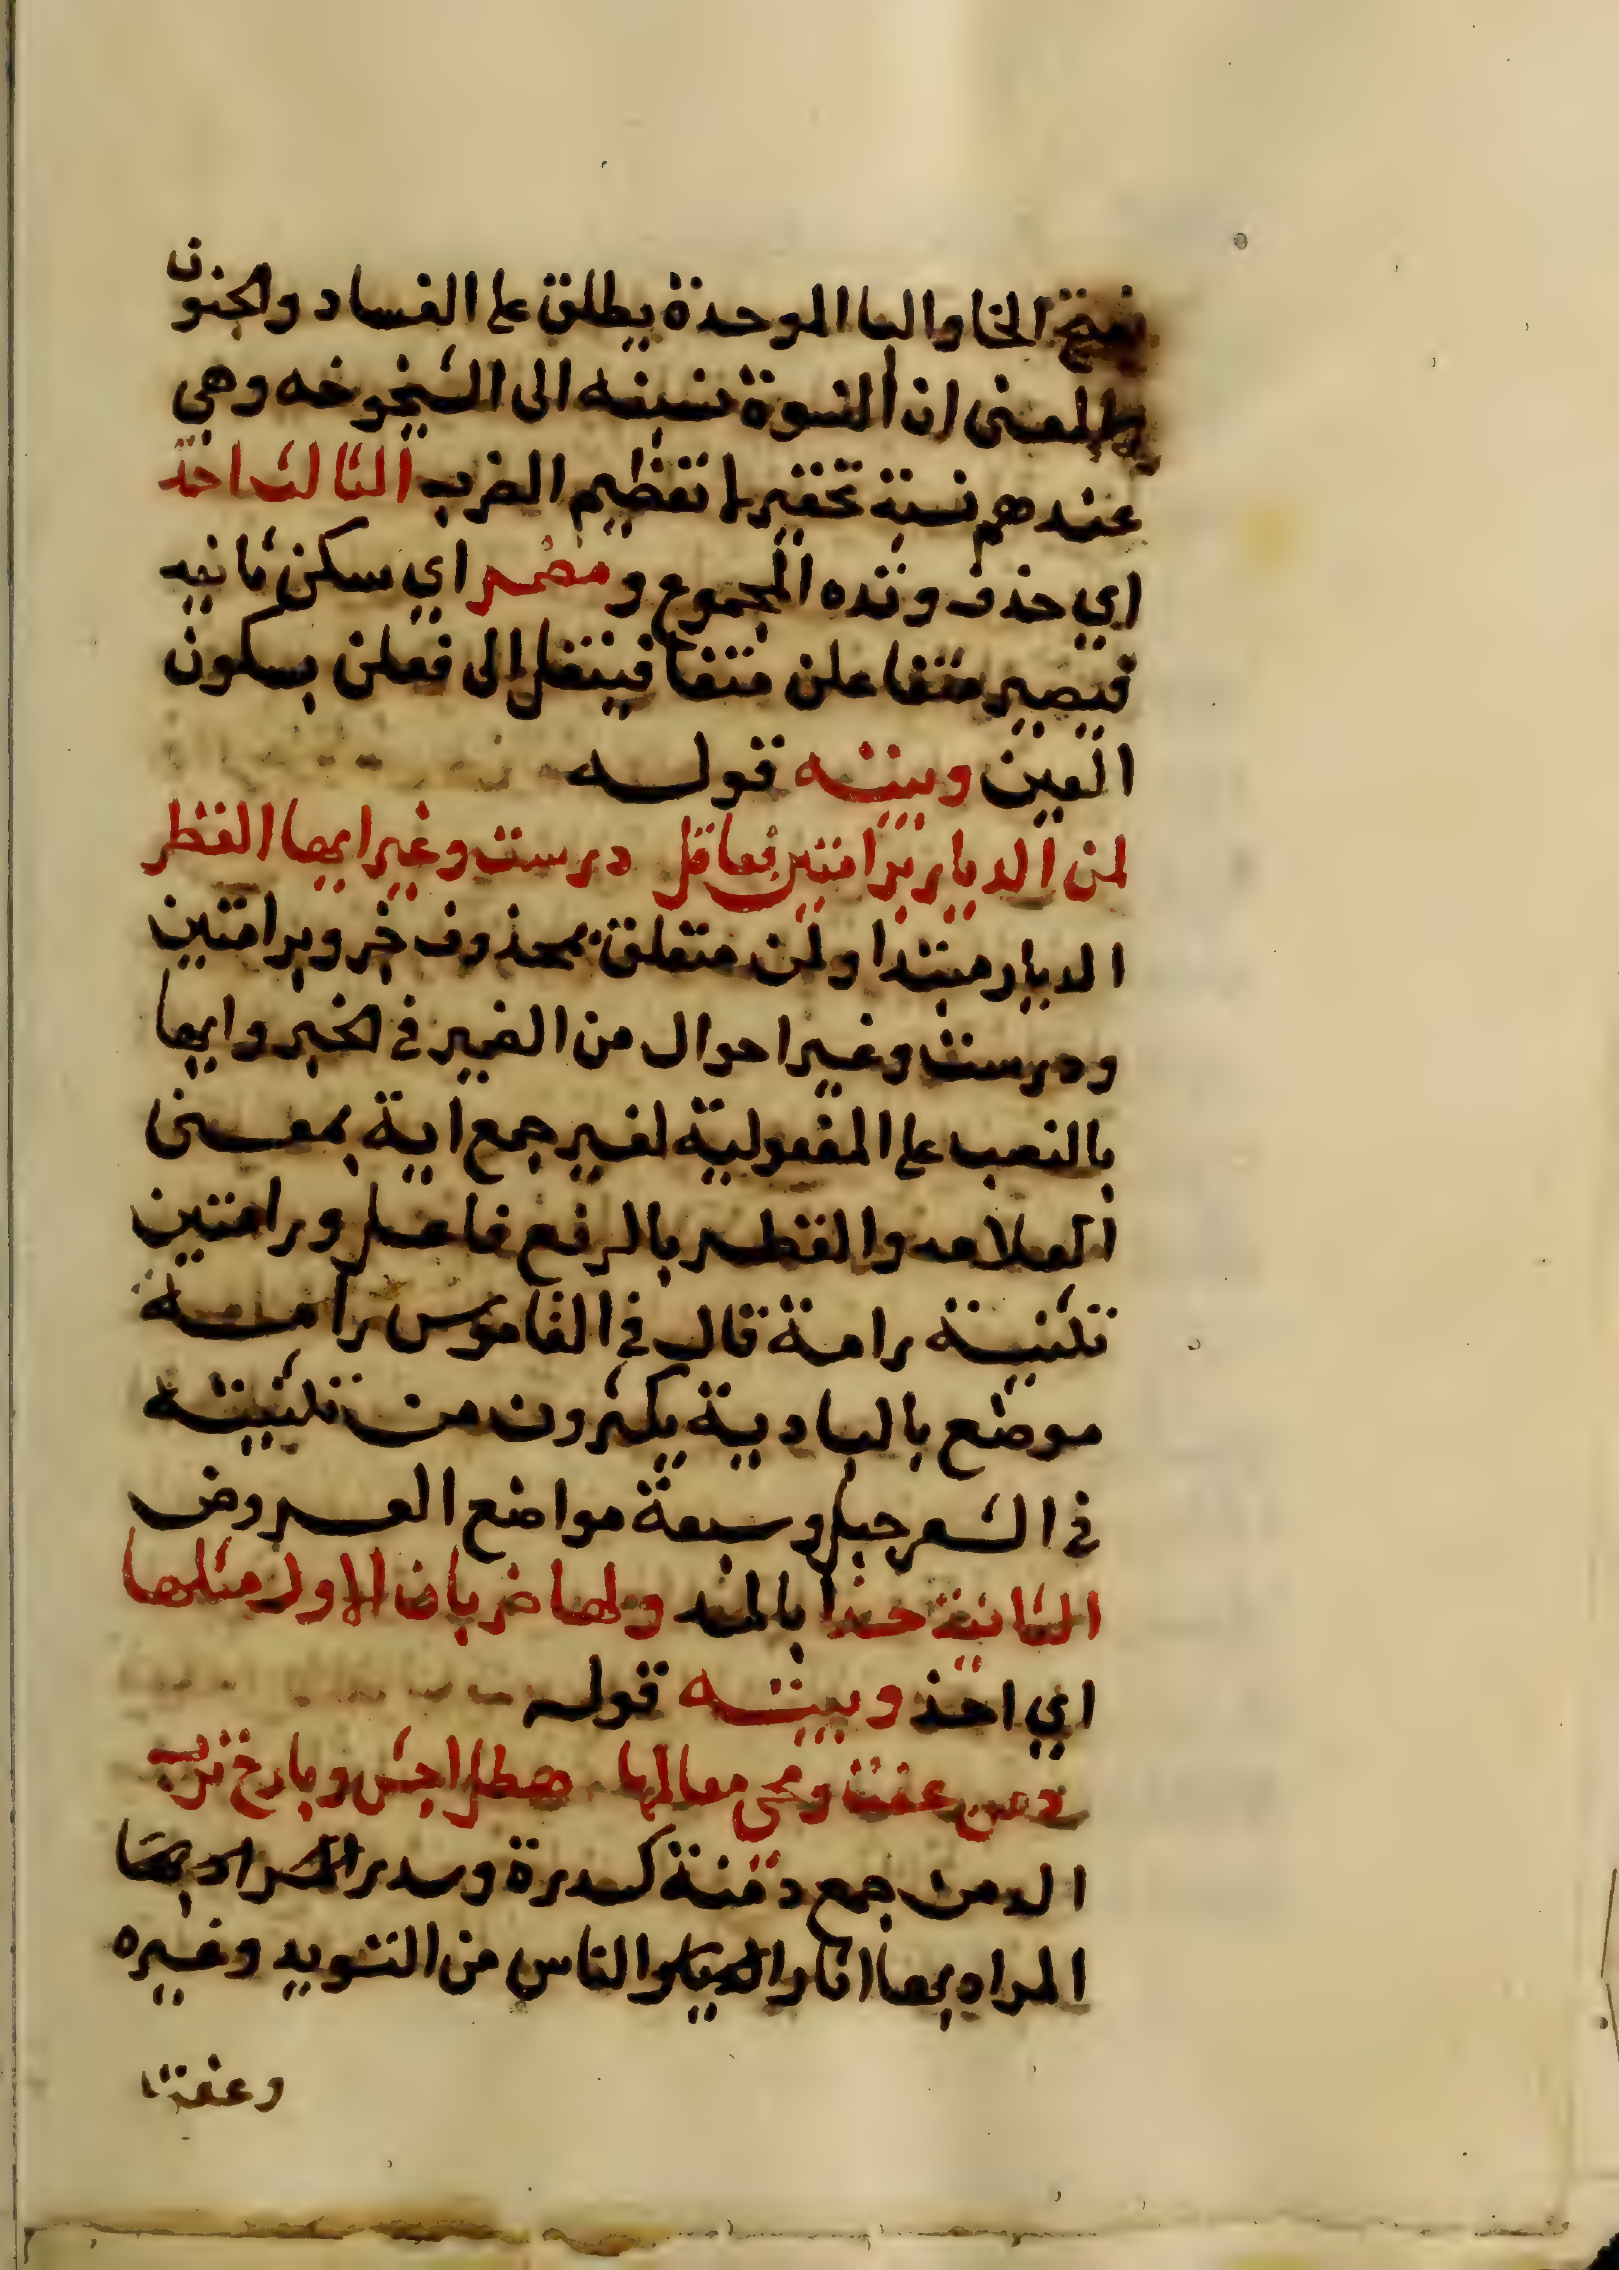 بفتح الخا والبا الموحدة يطلق على الفساد والجنون
والمعنى ان النسوة نسبنه الى الشيخوخه وهى
عندهم نسبة تحقير لا تعظيم الضرب الثالث احذ
اي حذف وتده المجموع ومضمر اي سكن ثانيه
فيصير متفاعلن متفا فينتقل الى فعلن بسكون
العين وبيته قوله
لمن الديار برامتين فعاقل درست وغير ايها القطر
الديار مبتدا ولمن متعلق بمحذوف خبر وبرامتين
ودرست وغير احوال من الضمير في الخبر وايها
بالنصب على المفعولية لغير جمع اية بمعنى
العلامه والقطر بالرفع فاعل ورامتين
تثنية رامة قال في القاموس رامة
موضع بالبادية يكثرون من تثنيته
في الشعر جبل وسبعة مواضع العروض
الثانية حذا بالمد ولها ضربان الاول مثلها
اي احذ وبيته قوله
دمن عفت ومحى معالمها هطل اجش وبارح ترب
الدمن جمع دمنة كسدرة وسدر المراد بها
المراد بها اثار الديار والناس من التسويد وغيره
وعفت